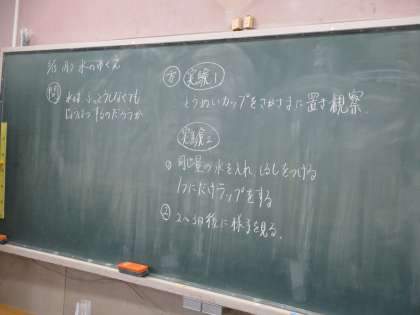 水のゆくえ
問 水は、ふっとうしなくても
じょうはつするのだろうか
方 実験1
とうめいカップをさかさまに置き観察。
実験2
① 同じ量の水を入れ、しるしをつける
1つにだけラップをする
② 2〜3日後に様子を見る。